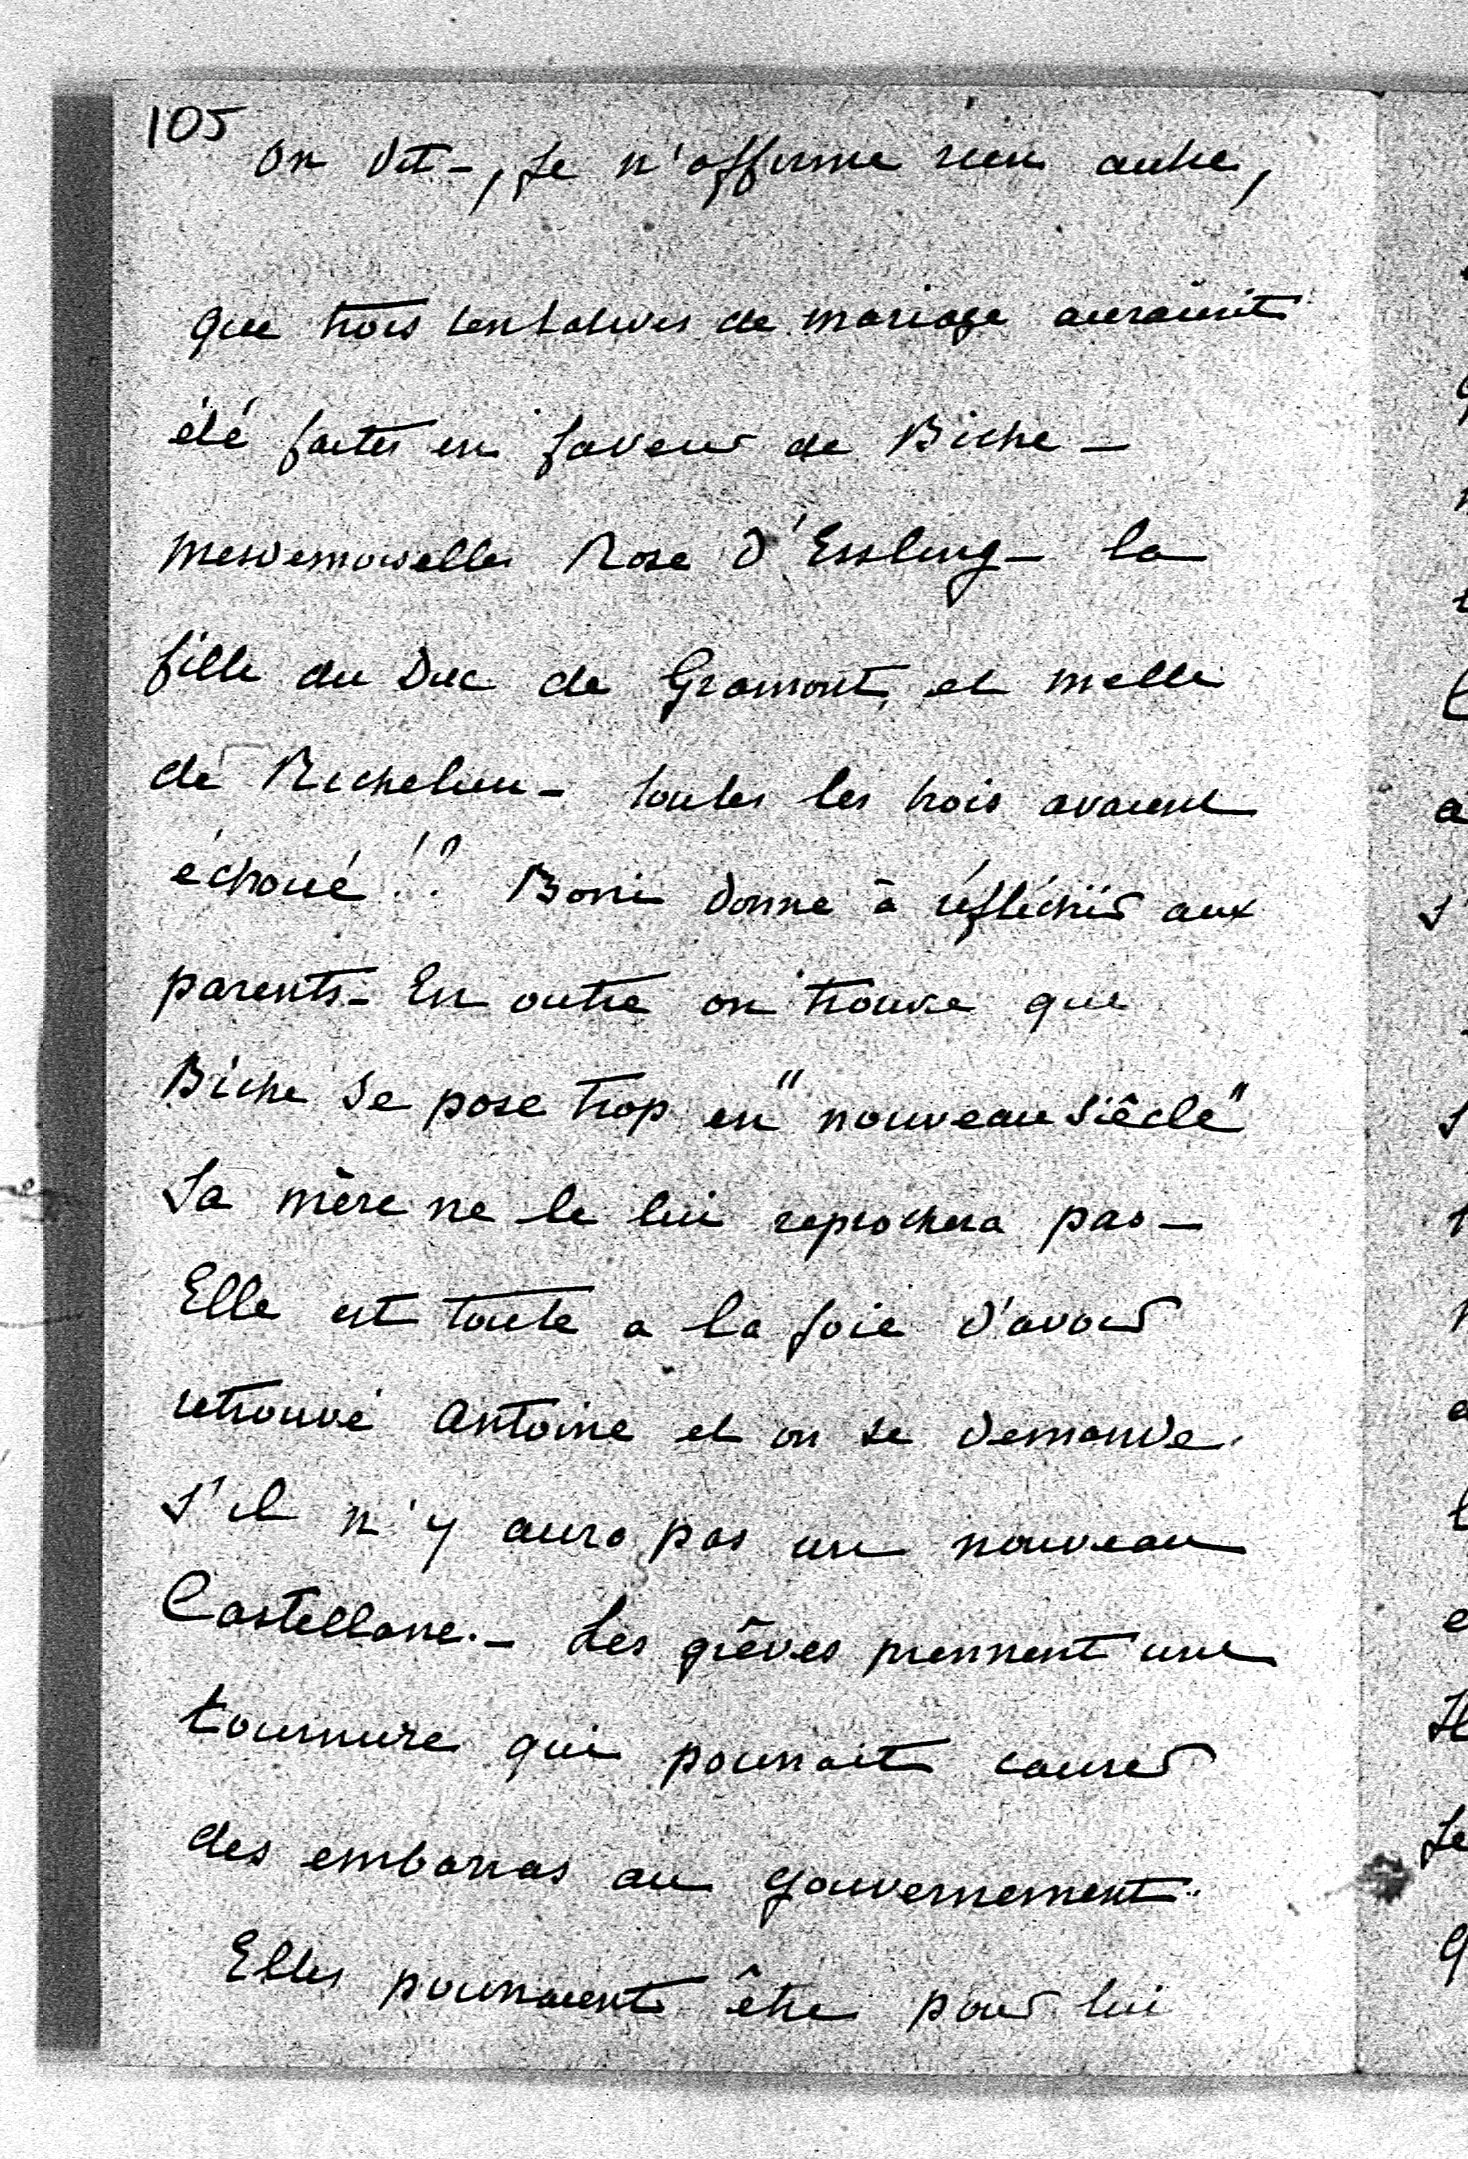 105
On dit -, je n'affirme rien autre,
que trois tentatives de mariage auraient
été faites en faveur de Biche -
mesdemoiselles Rose d'Essling - la
fille du Duc de Gramont, et melle
de Richelieu - toutes les trois avaient
échoué !? Boni donne à réfléchir aux
parents - En outre on trouve que
Biche se pose trop en "nouveau siècle"
Sa mère ne le lui reprochera pas -
Elle est toute a la joie d'avoir
retrouvé Antoine et on se demande
s'il n'y aura pas un nouveau
Castellane. - Les grêves prennent une
tournure qui pourrait causer
des embarras au gouvernement.
Elles pourraient être pour lui